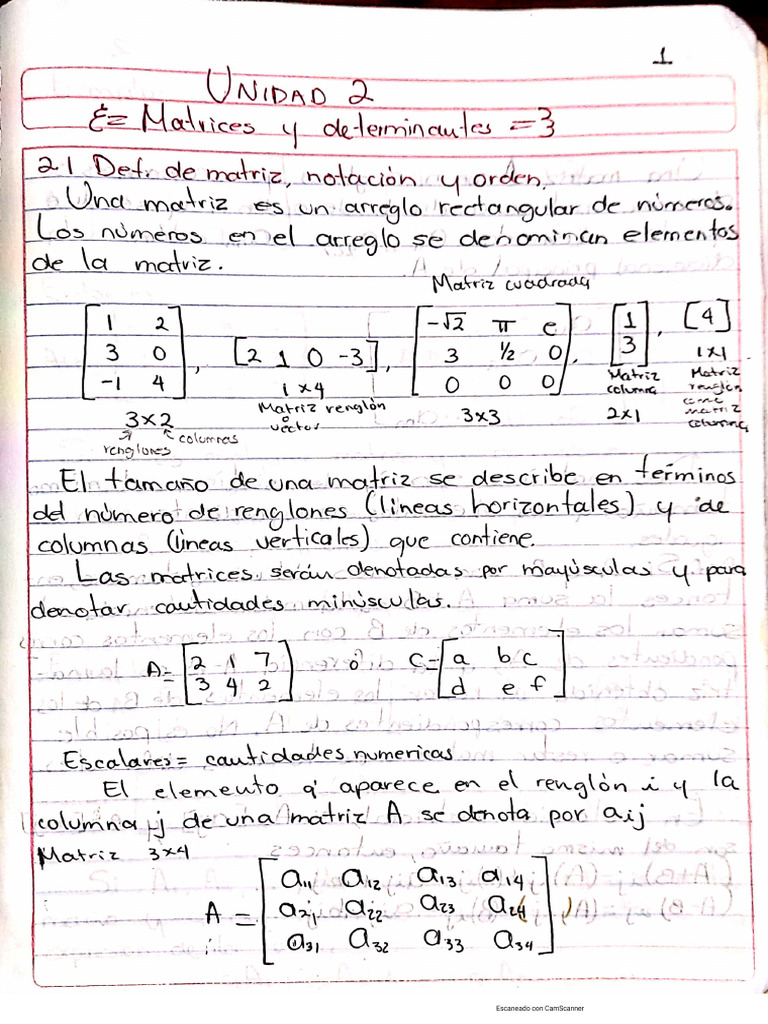 1
UNIDAD 2
Matrices y determinantes
2.1 Def. de matriz, notación y orden.
Una matriz es un arreglo rectangular de números.
Los números en el arreglo se denominan elementos
de la matriz.
Matriz cuadrada
[1 2
3 0
-1 4], [2 1 0 -3], [-√2 π e
3 1/2 0
0 0 0], [1
3], [4]
3x2
renglones columnas
1x4
Matriz renglón
o
vector
3x3
Matriz
columna
2x1
1x1
Matriz
renglón
como
matriz
columna
El tamaño de una matriz se describe en terminos
del número de renglones (lineas horizontales) y de
columnas (lineas verticales) que contiene.
Las matrices serán denotadas por mayúsculas y para
denotar cantidades minúsculas.
A= [2 1 7
3 4 2] o C= [a b c
d e f]
Escalares = cantidades numericas
El elemento q' aparece en el renglón i y la
columna j de una matriz A se denota por aij
Matriz 3x4
A = [a11 a12 a13 a14
a21 a22 a23 a24
a31 a32 a33 a34]
Escaneado con CamScanner